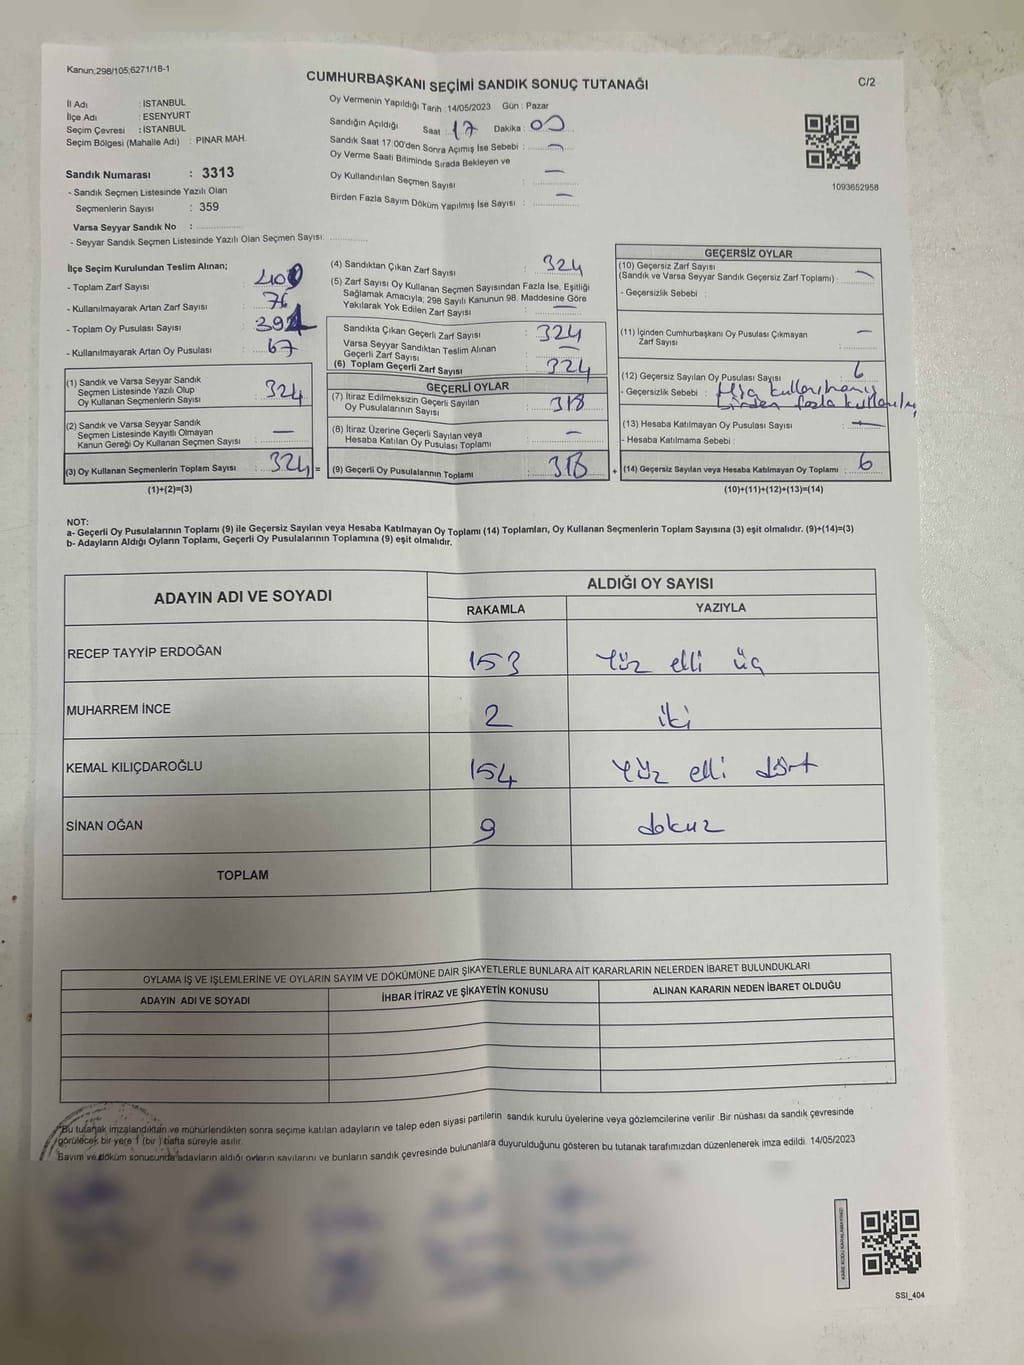 Kanun;298/105;6271/18-1
CUMHURBAŞKANI SEÇİMİ SANDIK SONUÇ TUTANAĞI
C/2
İl Adı : İSTANBUL
İlçe Adı : ESENYURT
Seçim Çevresi : İSTANBUL
Seçim Bölgesi (Mahalle Adı) : PINAR MAH.
Sandık Numarası : 3313
- Sandık Seçmen Listesinde Yazılı Olan
Seçmenlerin Sayısı : 359
Varsa Seyyar Sandık No :
- Seyyar Sandık Seçmen Listesinde Yazılı Olan Seçmen Sayısı:
Oy Vermenin Yapıldığı Tarih : 14/05/2023 Gün : Pazar
Sandığın Açıldığı Saat : 17 Dakika : 00
Sandık Saat 17:00'den Sonra Açımış İse Sebebi : —
Oy Verme Saati Bitiminde Sırada Bekleyen ve
Oy Kullandırılan Seçmen Sayısı : —
Birden Fazla Sayım Döküm Yapılmış İse Sayısı : —
1093652958
İlçe Seçim Kurulundan Teslim Alınan;
- Toplam Zarf Sayısı : 400
- Kullanılmayarak Artan Zarf Sayısı : 76
- Toplam Oy Pusulası Sayısı : 391
- Kullanılmayarak Artan Oy Pusulası : 67
(1) Sandık ve Varsa Seyyar Sandık
Seçmen Listesinde Yazılı Olup
Oy Kullanan Seçmenlerin Sayısı : 324
(2) Sandık ve Varsa Seyyar Sandık
Seçmen Listesinde Kayıtlı Olmayan
Kanun Gereği Oy Kullanan Seçmen Sayısı : —
(3) Oy Kullanan Seçmenlerin Toplam Sayısı : 324 =
(1)+(2)=(3)
(4) Sandıktan Çıkan Zarf Sayısı : 324
(5) Zarf Sayısı Oy Kullanan Seçmen Sayısından Fazla İse, Eşitliği
Sağlamak Amacıyla, 298 Sayılı Kanunun 98. Maddesine Göre
Yakılarak Yok Edilen Zarf Sayısı : —
Sandıkta Çıkan Geçerli Zarf Sayısı : 324
Varsa Seyyar Sandıktan Teslim Alınan
Geçerli Zarf Sayısı : —
(6) Toplam Geçerli Zarf Sayısı : 324
GEÇERLİ OYLAR
(7) İtiraz Edilmeksizin Geçerli Sayılan
Oy Pusulalarının Sayısı : 318
(8) İtiraz Üzerine Geçerli Sayılan veya
Hesaba Katılan Oy Pusulası Toplamı : —
(9) Geçerli Oy Pusulalarının Toplamı : 318 +
GEÇERSİZ OYLAR
(10) Geçersiz Zarf Sayısı
(Sandık ve Varsa Seyyar Sandık Geçersiz Zarf Toplamı) : —
- Geçersizlik Sebebi :
(11) İçinden Cumhurbaşkanı Oy Pusulası Çıkmayan
Zarf Sayısı : —
(12) Geçersiz Sayılan Oy Pusulası Sayısı : 6
- Geçersizlik Sebebi : Hiç
Birden fazla
(13) Hesaba Katılmayan Oy Pusulası Sayısı : —
- Hesaba Katılmama Sebebi :
(14) Geçersiz Sayılan veya Hesaba Katılmayan Oy Toplamı : 6
(10)+(11)+(12)+(13)=(14)
NOT:
a- Geçerli Oy Pusulalarının Toplamı (9) ile Geçersiz Sayılan veya Hesaba Katılmayan Oy Toplamı (14) Toplamları, Oy Kullanan Seçmenlerin Toplam Sayısına (3) eşit olmalıdır. (9)+(14)=(3)
b- Adayların Aldığı Oyların Toplamı, Geçerli Oy Pusulalarının Toplamına (9) eşit olmalıdır.
ADAYIN ADI VE SOYADI
ALDIĞI OY SAYISI
RAKAMLA YAZIYLA
RECEP TAYYİP ERDOĞAN 153 Yüz elli üç
MUHARREM İNCE 2 iki
KEMAL KILIÇDAROĞLU 154 Yüz elli dört
SİNAN OĞAN 9 dokuz
TOPLAM
OYLAMA İŞ VE İŞLEMLERİNE VE OYLARIN SAYIM VE DÖKÜMÜNE DAİR ŞİKAYETLERLE BUNLARA AİT KARARLARIN NELERDEN İBARET BULUNDUKLARI
ADAYIN ADI VE SOYADI İHBAR İTİRAZ VE ŞİKAYETİN KONUSU ALINAN KARARIN NEDEN İBARET OLDUĞU
Bu tutanak imzalandıktan ve mühürlendikten sonra seçime katılan adayların ve talep eden siyasi partilerin sandık kurulu üyelerine veya gözlemcilerine verilir .Bir nüshası da sandık çevresinde
görülecek bir yere 1 (bir ) hafta süreyle asılır.
Sayım ve döküm sonucunda adayların aldığı oyların sayılarını ve bunların sandık çevresinde bulunanlara duyurulduğunu gösteren bu tutanak tarafımızdan düzenlenerek imza edildi. 14/05/2023
KARE KODU KARALAMAYINIZ!
SSI_404